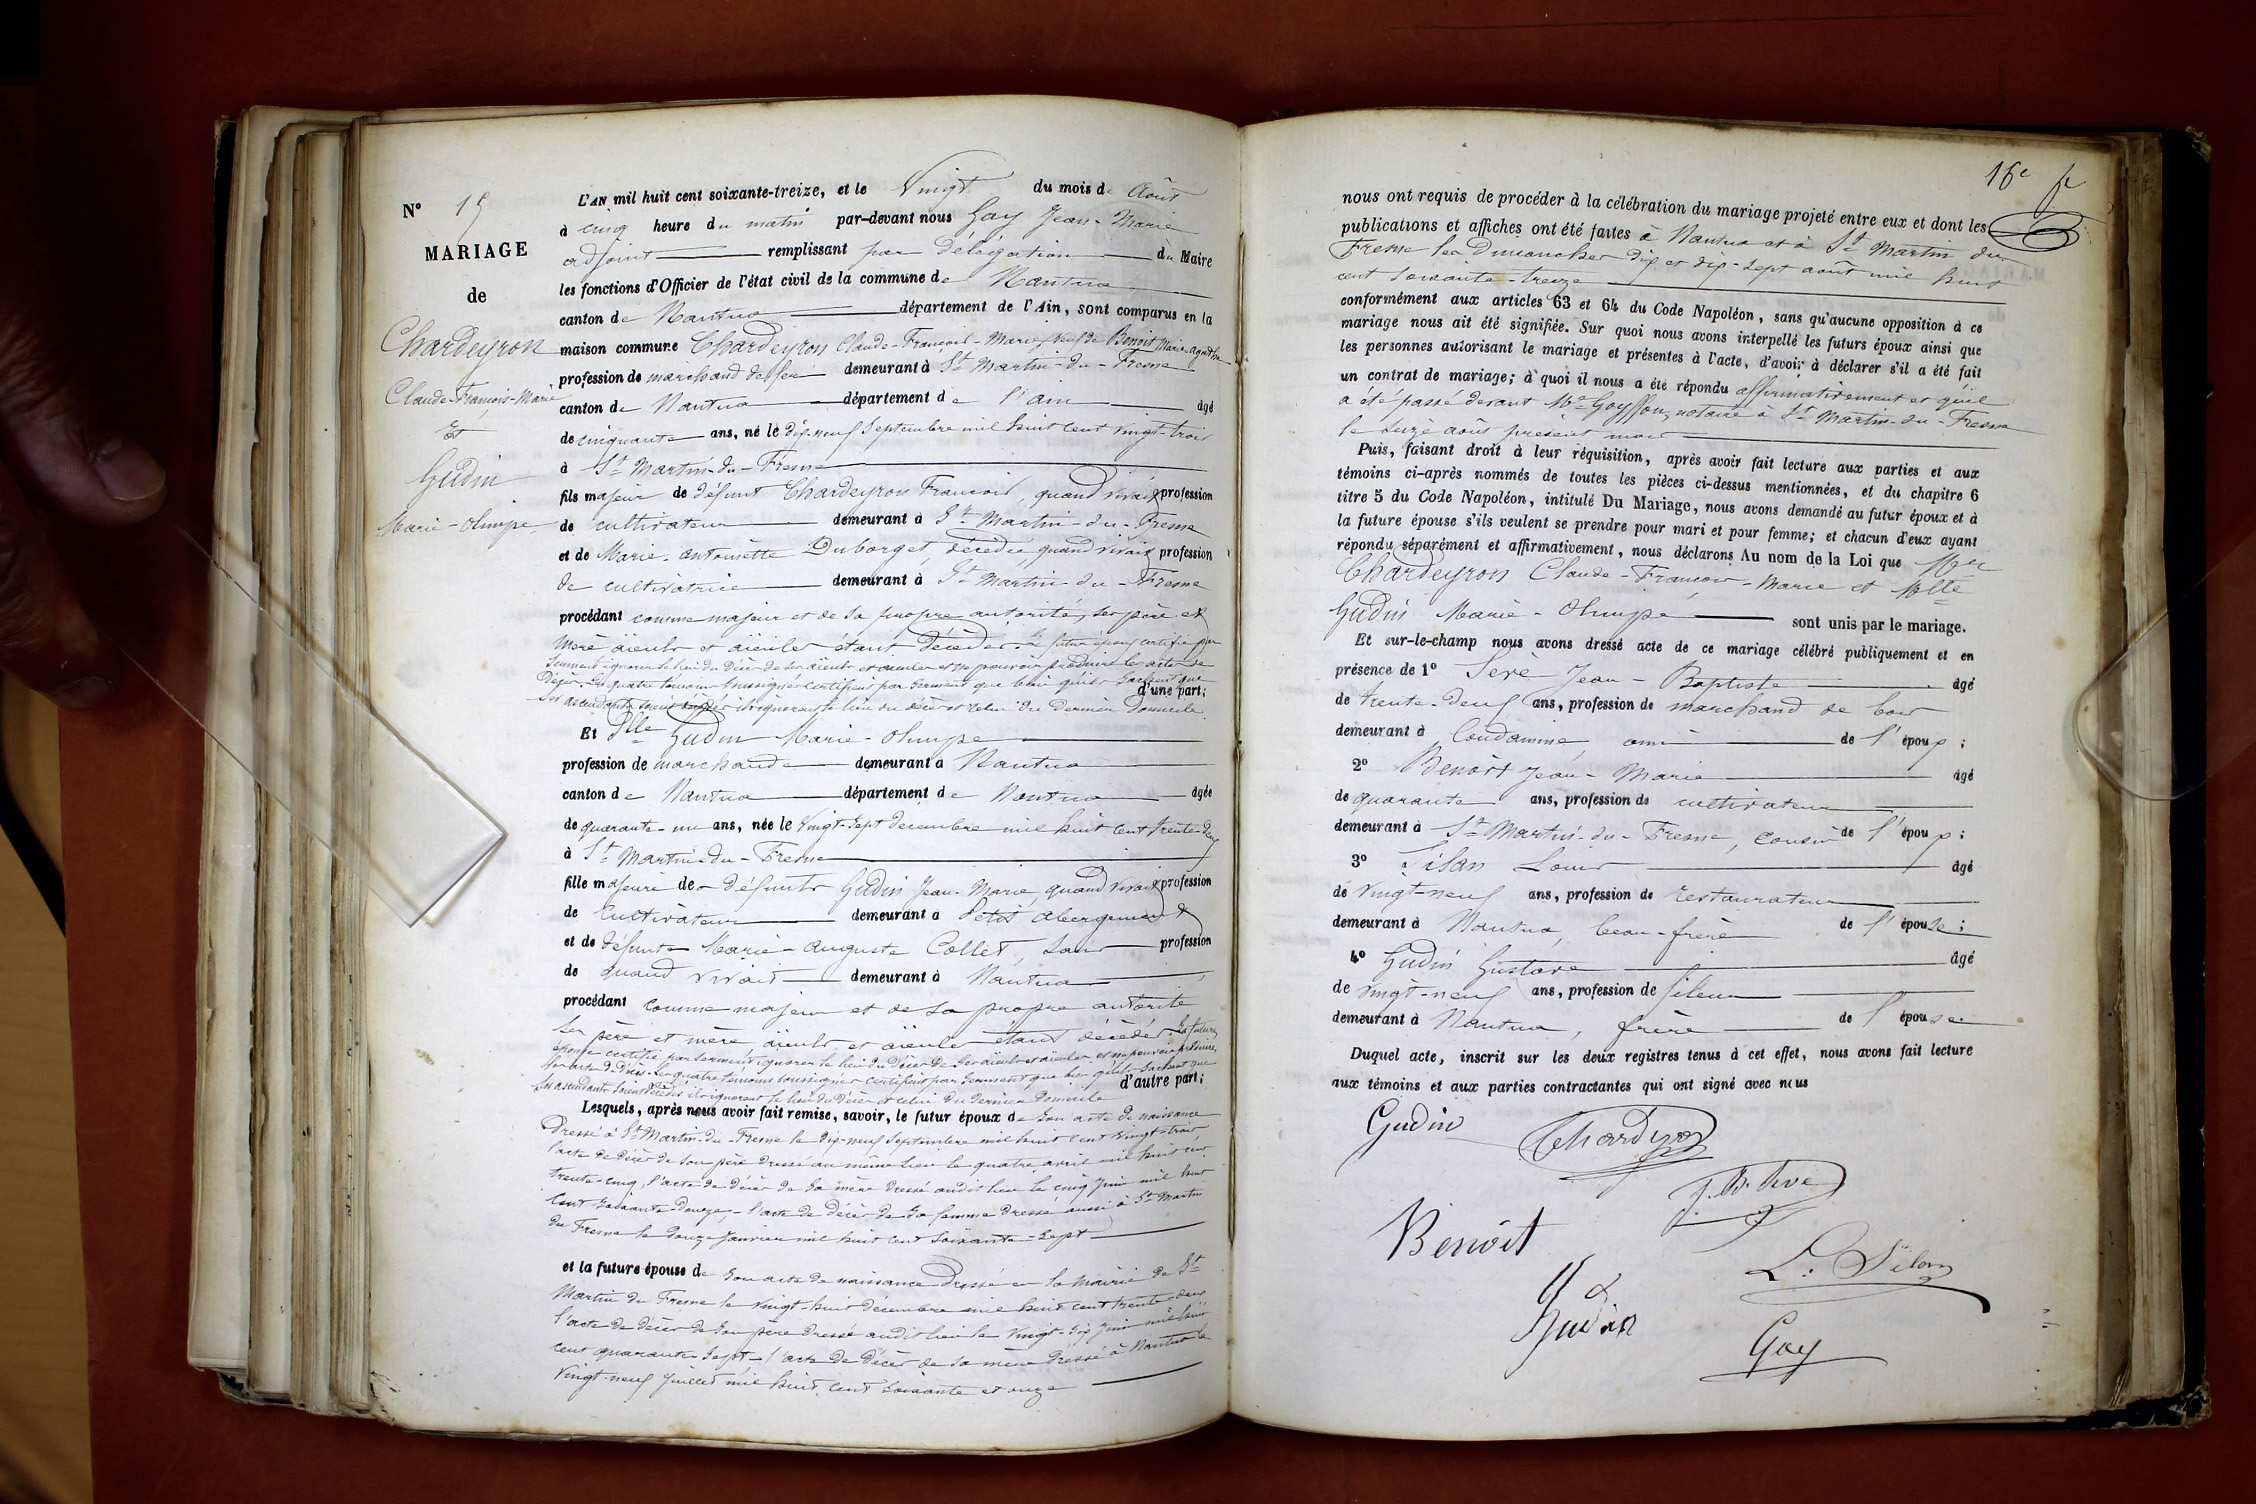 N° 15
MARIAGE
de
Chardeyron
Claude-François-Marie
Et
Gudin
Marie-Olimpe
L'AN mil huit cent soixante-treize, et le Vingt du mois de Août
à cinq heure du matin par-devant nous Gay Jean-Marie
adjoint remplissant par Délégation du Maire
les fonctions d'Officier de l'état civil de la commune de Nantua
canton de Nantua département de l'Ain, sont comparus en la
maison commune Chardeyron Claude-François-Marie, veuf de Benoit Marie Agathe
profession de marchand de demeurant à St Martin-du-Fresne
canton de Nantua département de l'ain âgé
de cinquante ans, né le dix-neuf Septembre mil huit cent vingt-trois
à St Martin-du-Fresne
fils majeur de défunt Chardeyron François, quand vivait profession
de cultivateur demeurant à St Martin-du-Fresne
et de Marie-Antoinette Duborget, décédée, quand vivait profession
de cultivatrice demeurant à St Martin-du-Fresne
procédant comme majeur et de sa propre autorité, ses père et
mère aïeuls et aïeules étant décédés. Le futur époux certifie par
Serment ignorer le lieu du Décès de ses aïeuls et aïeules et ne pouvoir produire les actes de
Décès. Les quatre témoins soussignés certifient par Serment que bien qu'ils sachent que
d'une part;
Ses ascendants soient décédés ils ignorent le lieu du décès et celui du dernier Domicile.
Et Dlle Gudin Marie-Olimpe
profession de marchande demeurant à Nantua
canton de Nantua département de Nantua âgée
de quarante-un ans, née le Vingt-Sept decembre mil huit cent trente-deux
à St Martin-du-Fresne
fille majeure de défunts Gudin Jean-Marie, quand vivait profession
de Cultivateur demeurant à Petit Abergement
et de défunte Marie-Auguste Collet, sans profession
de quand vivait demeurant à Nantua
procédant comme majeur et de sa propre autorité
Ses père et mère aïeuls et aïeules étant décédés. La future
épouse certifie par serment ignorer le lieu du Décès De Ses aïeuls et aïeules et ne pouvoir produire
les actes De Décès. Les quatre témoins soussignés certifient par Serment que bien qu'ils sachent que
d'autre part;
Ses ascendants soient décédés ils ignorent le lieu du Décès et celui du dernier Domicile
Lesquels, après nous avoir fait remise, savoir, le futur époux de Son acte de naissance
Dressé à St Martin-du-Fresne le dix-neuf Septembre mil huit cent vingt-trois
l'acte de décès de son père dressé au même lieu le quatre avril mil huit cent
trente-cinq, l'acte de décès de sa mère dressé audit lieu le cinq Juin mil huit
cent Soixante-Douze, l'acte de Décès de sa femme dressé aussi à St Martin
du Fresne le douze Janvier mil huit cent Soixante-Sept
et la future épouse de Son acte de naissance Dressé en la mairie de St
Martin du Fresne le vingt-huit décembre mil huit cent trente deux
l'acte de décès de Son père dressé audit lieu le vingt-six Juin mil huit
cent quarante-Sept, l'acte De Décès de sa mère dressé à Nantua le
Vingt-neuf Juillet mil huit cent soixante et onze
16e
nous ont requis de procéder à la célébration du mariage projeté entre eux et dont les
publications et affiches ont été faites à Nantua et à St Martin du
Fresne les Dimanches dix et dix-sept août mil huit
cent soixante-treize
conformément aux articles 63 et 64 du Code Napoléon, sans qu'aucune opposition à ce
mariage nous ait été signifiée. Sur quoi nous avons interpellé les futurs époux ainsi que
les personnes autorisant le mariage et présentes à l'acte, d'avoir à déclarer s'il a été fait
un contrat de mariage; à quoi il nous a été répondu affirmativement et qu'il
a été passé devant Me Goyffon, notaire à St Martin-du-Fresne
le seize août présent mois
Puis, faisant droit à leur réquisition, après avoir fait lecture aux parties et aux
témoins ci-après nommés de toutes les pièces ci-dessus mentionnées, et du chapitre 6
titre 5 du Code Napoléon, intitulé Du Mariage, nous avons demandé au futur époux et à
la future épouse s'ils veulent se prendre pour mari et pour femme; et chacun d'eux ayant
répondu séparément et affirmativement, nous déclarons Au nom de la Loi que Mr
Chardeyron Claude-François-Marie et Mlle
Gudin Marie-Olimpe sont unis par le mariage.
Et sur-le-champ nous avons dressé acte de ce mariage célébré publiquement et en
présence de 1° Sève Jean-Baptiste âgé
de trente-deux ans, profession de marchand de bois
demeurant à Condamine, ami de l'époux;
2° Benoit Jean-Marie âgé
de quarante ans, profession de cultivateur
demeurant à St Martin-du-Fresne, cousin de l'époux;
3° Silan Louis âgé
de vingt-neuf ans, profession de restaurateur
demeurant à Nantua, beau-frère de l'épouse;
4° Gudin Gustave âgé
de vingt-neuf ans, profession de fileur
demeurant à Nantua, frère de l'épouse.
Duquel acte, inscrit sur les deux registres tenus à cet effet, nous avons fait lecture
aux témoins et aux parties contractantes qui ont signé avec nous
Gudin
Chardeyron
J. B. Sève
Benoît
L. Silan
Gudin
Gay